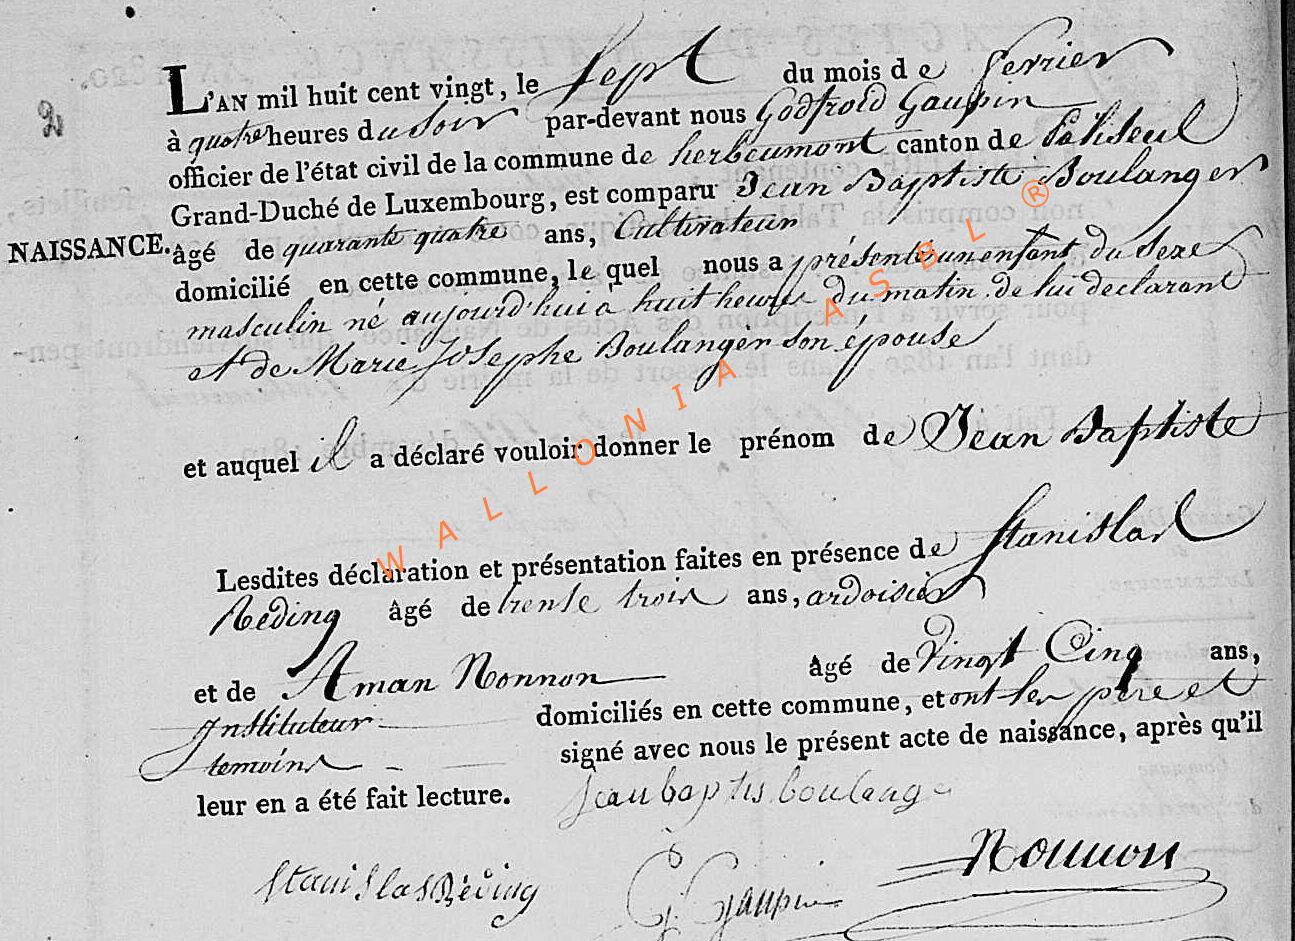 2
L'AN mil huit cent vingt, le sept du mois de fevrier
à quatre heures du soir par-devant nous Godfroid Gaupin
officier de l'état civil de la commune de herbeumont canton de Paliseul
Grand-Duché de Luxembourg, est comparu Jean Baptiste Boulanger
NAISSANCE. âgé de quarante quatre ans, Cultivateur
domicilié en cette commune, le quel nous a présenté un enfant du sexe
masculin né aujourd'hui à huit heures du matin de lui declarant
et de Marie Josephe Boulanger son épouse
et auquel il a déclaré vouloir donner le prénom de Jean Baptiste
Lesdites déclaration et présentation faites en présence de Stanislas
Reding âgé de trente trois ans, ardoisier
et de Aman Nonnon âgé de vingt Cinq ans,
Instituteur domiciliés en cette commune, et ont les père et
temoins signé avec nous le présent acte de naissance, après qu'il
leur en a été fait lecture. Jean baptis boulange
Stanislas Réding G. Gaupin Nonnon
WALLONIA ASBL ®